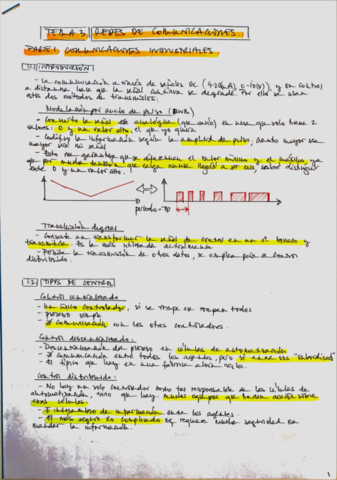 TEMA 3. REDES DE COMUNICACIONES
PARTE I COMUNICACIONES INDUSTRIALES
1.1 INTRODUCCIÓN
- La comunicación a través de señales DC (4-20mA, 0-10V), y en control
a distancia hace que la señal continua se degrade. Por ello se usan
estos dos métodos de transmisión:
Modulación por ancho de pulso (PWM)
- Convierto la señal analógica en una que solo tiene 2
valores: 0 y un valor alto, el que yo quiera
- Codifico la información según la amplitud de pulso, cuanto mayor sea
mayor será mi señal
- Esto me garantiza que se diferencian el valor mínimo y el máximo, ya
que por mucha tensión que caiga nunca llegará a 0 es decir
entre 0 y un valor alto.
período = T0
Transmisión digital
- Consiste en transformar la señal de control en un nº binario y
transmitirlo. Es la más utilizada actualmente
- Posible la transmisión de otros datos, se emplea para el control
distribuido.
1.2 TIPOS DE CONTROL
Control centralizado
- Un único controlador, si se rompe se rompen todos
- proceso simple
- comunicación con los otros controladores.
Control descentralizado:
- Descentralización del proceso en células de automatización
- comunicación entre todos los agentes, pero
- El típico que hay en una fábrica
Control distribuido:
- No hay un solo controlador responsable de las células de
automatización, sino que hay muchos equipos que tienen acción sobre
otras células.
- Intercambio de información entre los agentes.
- El más seguro y complicado, requiere mucha seguridad en
mandar la información.
1